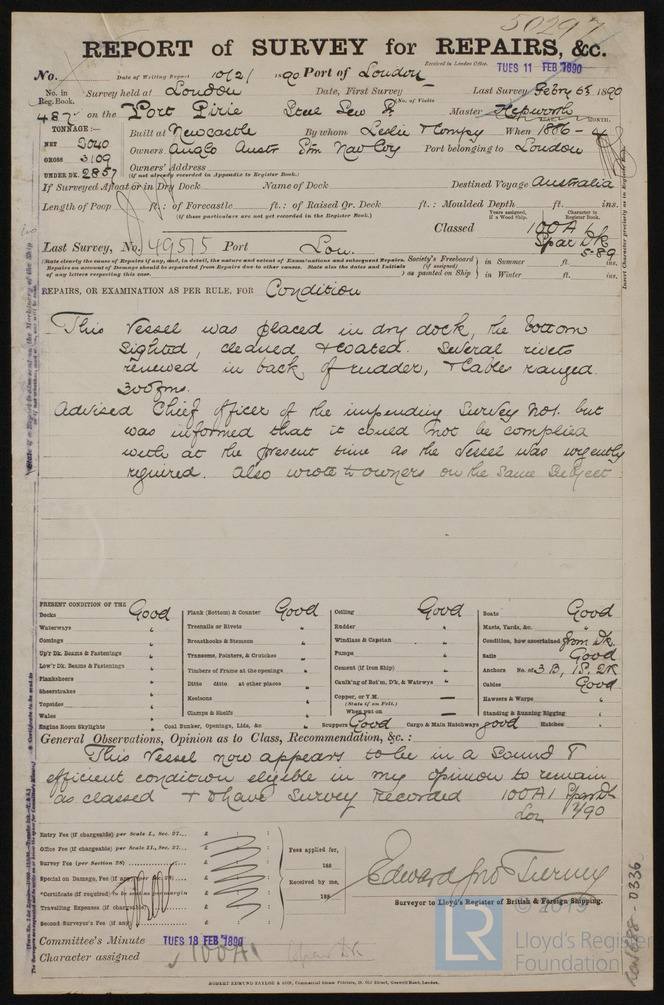 50297
REPORT of SURVEY for REPAIRS, &c.
Received in London Office.
No. Date of Writing Report 10/2/ 1890 Port of London TUES 11 FEB 1890
No. in Reg. Book. Survey held at London Date, First Survey Last Survey Febry 6th 1890
(No. of Visits
487 on the Port Pirie Steel Sew Sr Master Hepworth
TONNAGE:— Built at Newcastle By whom Leslie & Compy When 1886-4
YEAR. MONTH.
NETT 2040 Owners Anglo Austr Stm Nav Coy Port belonging to London
GROSS 3109 Owners' Address
UNDER DK. 2857 (If not already recorded in Appendix to Register Book.)
If Surveyed Afloat or in Dry Dock Name of Dock Destined Voyage Australia
Length of Poop ft.: of Forecastle ft.: of Raised Qr. Deck ft.: Moulded Depth ft. ins.
(If these particulars are not yet recorded in the Register Book.)
Years assigned, if a Wood Ship. Character in Register Book.
Classed 100A1
Spar Dk
5-89
Last Survey, No. 49515 Port Lon.
(State clearly the cause of Repairs if any, and, in detail, the nature and extent of Examinations and subsequent Repairs.
Repairs on account of Damage should be separated from Repairs due to other causes. State also the dates and Initials
of any letters respecting this case.)
Society's Freeboard (if assigned) as painted on Ship in Summer ft. ins.
in Winter ft. ins.
REPAIRS, OR EXAMINATION AS PER RULE, FOR Condition
This Vessel was placed in dry dock, the bottom
sighted, cleaned & coated. Several rivets
renewed in back of rudder, & Cables ranged
300 fms.
Advised Chief Officer of the impending Survey No1. but
was informed that it could not be complied
with at the present time as the Vessel was urgently
required. Also wrote to owners on the same subject
PRESENT CONDITION OF THE
Decks Good Plank (Bottom) & Counter Good Ceiling Good Boats Good
Waterways " Treenails or Rivets " Rudder " Masts, Yards, &c. "
Comings " Breasthooks & Stemson " Windlass & Capstan " Condition, how ascertained from Dk.
Up'r Dk. Beams & Fastenings " Transoms, Pointers, & Crutches " Pumps " Sails Good
Low'r Dk. Beams & Fastenings " Timbers of Frame at the openings " Cement (if Iron Ship) " Anchors No. of 3 B, 1 S, 2 K
Planksheers " Ditto ditto at other places " Caulk'ng of Bot'm, D'k, & Watrwys " Cables Good
Sheerstrakes " Keelsons " Copper, or Y.M. — Hawsers & Warps "
Topsides " Clamps & Shelfs " (State if on Felt.)
Wales " When put on — Standing & Running Rigging "
Engine Room Skylights " Coal Bunker, Openings, Lids, &c " Scuppers Good Cargo & Main Hatchways good Hatches "
General Observations, Opinion as to Class, Recommendation, &c.:
This Vessel now appears to be in a Sound &
efficient condition eligible in my opinion to remain
as classed & to have Survey recorded 100A1 Spar Dk
Lon 2/90
Entry Fee (if chargeable) per Scale I., Sec. 27... £ : :
Office Fee (if chargeable) per Scale II., Sec. 27... £ : :
Survey Fee (per Section 28) £ : :
Special on Damage, Fee (if any) £
*Certificate (if required) to be sent as per margin £
Travelling Expenses (if chargeable) £
Second Surveyor's Fee (if any) £
Fees applied for,
188
Received by me,
188
Edward Jno Tierney
Surveyor to Lloyd's Register of British & Foreign Shipping.
Committee's Minute TUES 18 FEB 1890
Character assigned 100A1 Spar Dk
ROBERT EDMUND TAYLOR & SON, Commercial Steam Printers, 19, Old Street, Goswell Road, London.
LR
© 2019
Lloyd's Register
Foundation